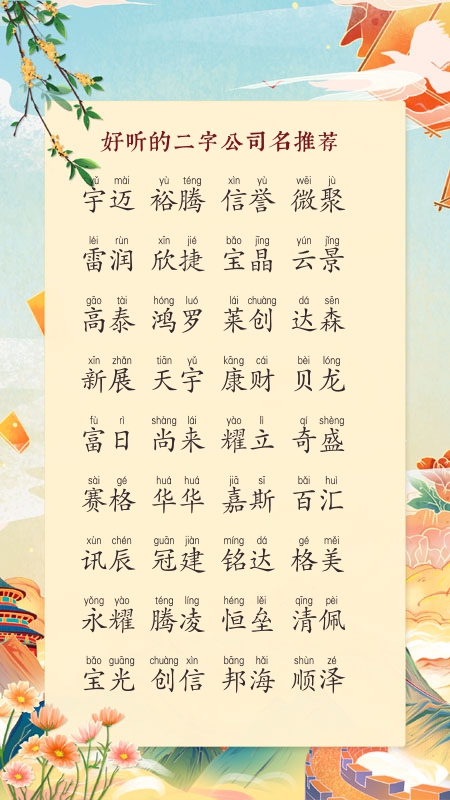 好听的二字公司名推荐
yǔ mài yù téng xìn yù wēi jù
宇迈 裕腾 信誉 微聚
léi rùn xīn jié bǎo jīng yún jǐng
雷润 欣捷 宝晶 云景
gāo tài hóng luó lái chuàng dá sēn
高泰 鸿罗 莱创 达森
xīn zhǎn tiān yǔ kāng cái bèi lóng
新展 天宇 康财 贝龙
fù rì shàng lái yào lì qí shèng
富日 尚来 耀立 奇盛
sài gé huá huá jiā sī bǎi huì
赛格 华华 嘉斯 百汇
xùn chén guān jiàn míng dá gé měi
讯辰 冠建 铭达 格美
yǒng yào téng líng héng lěi qīng pèi
永耀 腾凌 恒垒 清佩
bǎo guāng chuàng xìn bāng hǎi shùn zé
宝光 创信 邦海 顺泽